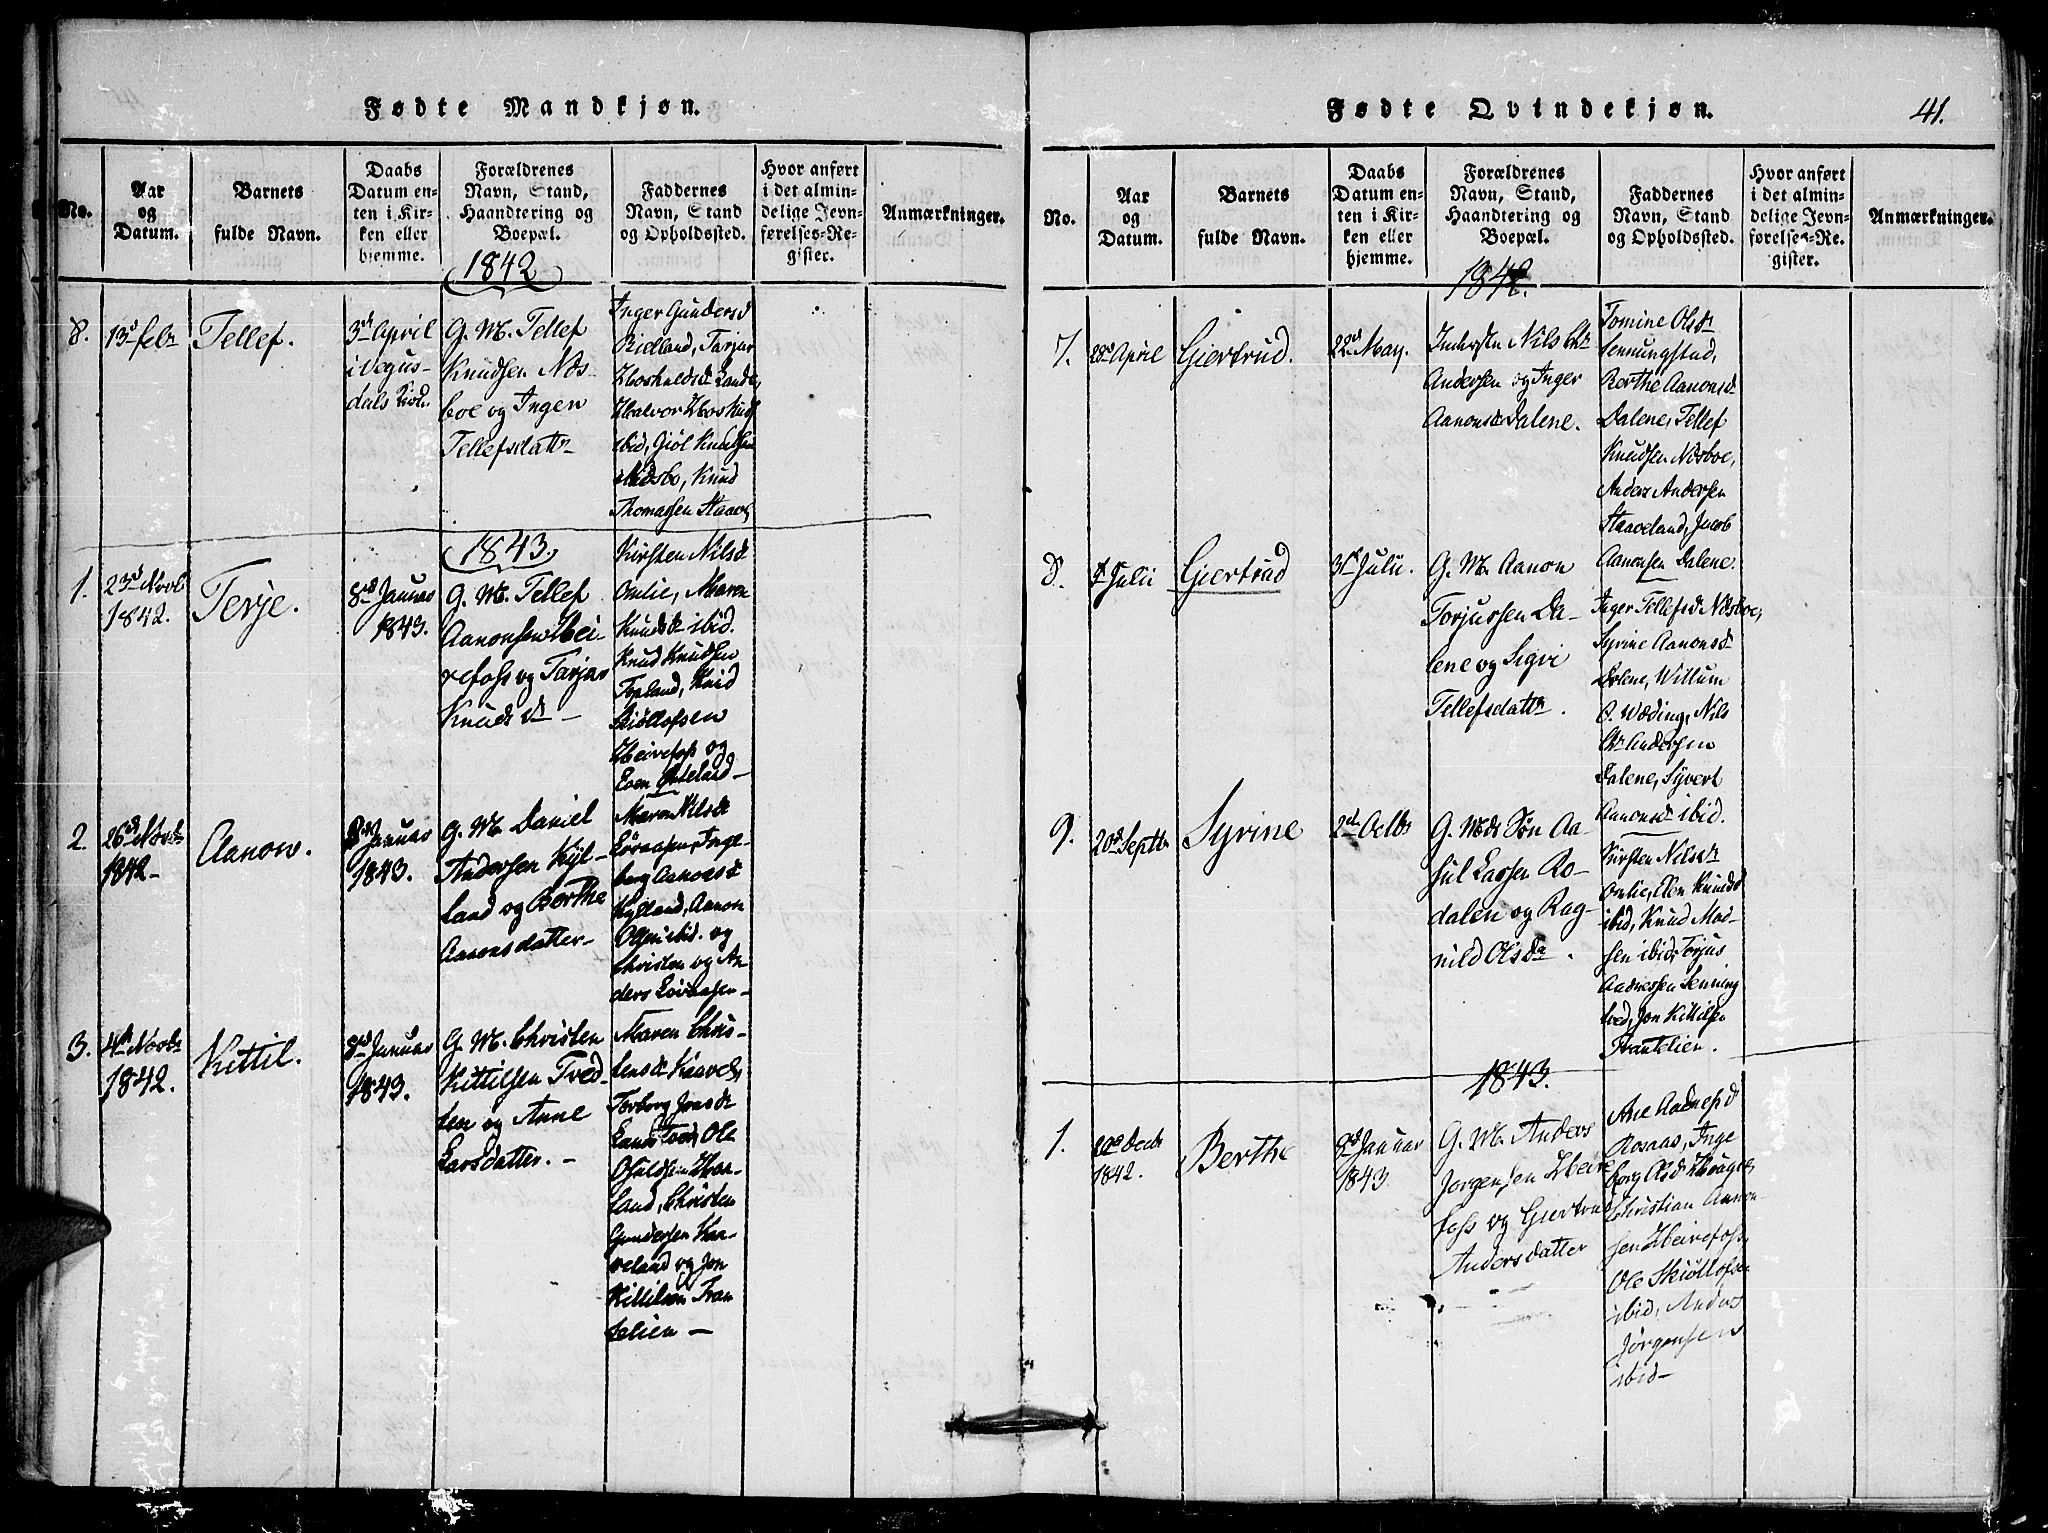 Fødte Mandkjøn.
No.
Aar
og
Datum.
Barnets
fulde Navn.
Daabs
Datum en-
ten i Kir-
ken eller
hjemme.
Forældrenes
Navn, Stand,
Haandtering og
Boepæl.
Faddernes
Navn, Stand
og Opholdssted.
Hvor anført
i det almin-
delige Jevn-
førelses-Re-
gister.
Anmærkninger.
1842
8.
13d febr
Tellef.
3d April
i Vegus-
dals Kirke
G. M. Tellef
Knudsen Næs-
boe og Ingen
Tellefsdattr
Inger Gundersd
Ridland, Tarjer
Hoskuldsd Lande,
Halvor Hoskuds
ibid, Giöl Knudsen
Nædsbo, Knud
Thomassen Staavel
1843.
1.
23d Novbr
1842.
Terje.
8d Januar
1843.
G. M. Tellef
Aanonsen Hei-
refoss og Tarjer
Knudsd –
Kirsten Nilsd
Omlie, Maren
Knudsd ibid.
Knud Knudsen
Topland, Knud
Skiöllofsen
Heirefoss og
Even
2.
26d Novbr
1842 –
Aanon.
8d Januar
1843.
G. M. Daniel
Andersen Kyl-
land og Berthe
Aanonsdatter –
Maren Nilsd
Lövaasen, Inge-
borg Aanonsd
Kylland, Aanon
Olsen ibid. og
Christen og An-
ders Lövaasen –
3.
4d Novbr
1842.
Kittil.
8d Januar
1843.
G. M. Christen
Kittilsen Tved-
ten og Anne
Larsdatter. –
Maren Chris-
tensd Kaavel,
Torborg Jonsd
Ole
Haa-
land, Christen
Gundersen Haa-
veland og Jon
Kittilsen Tran
telien –
Fødte Qvindekjøn.
41.
No.
Aar
og
Datum.
Barnets
fulde Navn.
Daabs
Datum en-
ten i Kir-
ken eller
hjemme.
Forældrenes
Navn, Stand,
Haandtering og
Boepæl.
Faddernes
Navn, Stand
og Opholdssted.
Hvor anført
i det almin-
delige Jevn-
førelses-Re-
gister.
Anmærkninger.
1842.
7.
28d April
Giertrud.
22d May.
Inderste Nils Chr
Andersen og Inger
Aanonsd Dalene.
Tomine Olsd
Sennungstad,
Berthe Aanonsd
Dalene, Tellef
Knudsen Næsboe,
Anders Andersen
Staaveland, Jacob
Aanonsen Dalene.
8.
Julii
Giertrud
31d Julii.
G. M. Aanon
Torjussen Da-
lene og Sigvi
Tellefsdattr.
Inger Tellefsd Næsboe,
Syrine Aanonsd
Dalene, Willum
O. Wæding, Nils
Chr Andersen
Dalene, Syvert
Aanonsd ibid.
9.
20d Septbr
Syrine
2d Octbr
G. Mds Søn Aa-
sul Lassen Ro-
dalen og Rag-
nild Olsdr.
Kirsten Nilsd
Omlie, Elen Knudsd
ibid, Knud Mad-
sen ibid, Torjus
Aadnesen Senning
sted, Jon Kittilsen
Trantelien.
1843.
1.
Decbr
1842.
Berthe
8d Januar
1843.
G. M. Anders
Jørgensen Heire
foss og Giertrud
Andersdatter
Ane Aadnesd
Rosaas, Inge
borg Olsd
Christian Aanon-
sen Heirefoss,
Ole Skiöllofsen
ibid, Anders
Jørgensen
ibid –